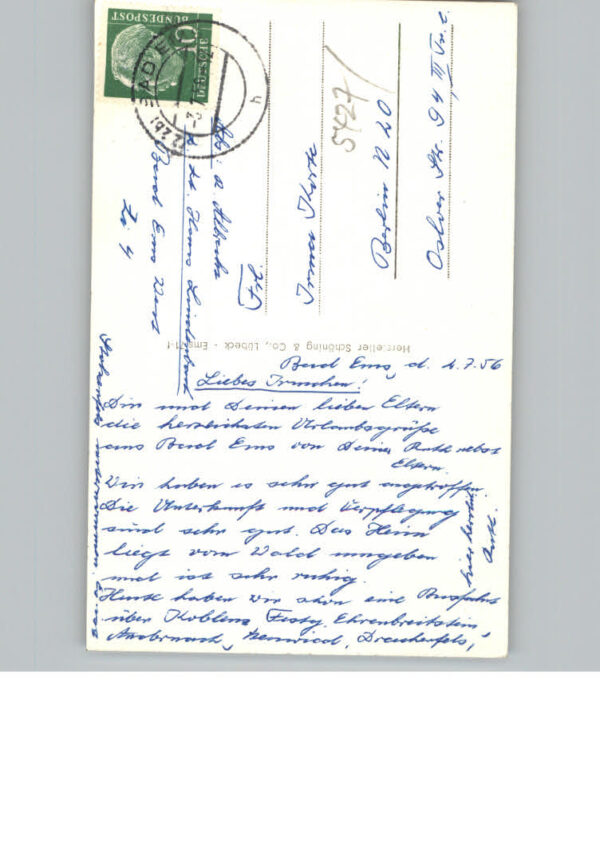 10
DEUTSCHE
BUNDESPOST
(22b) BAD EMS
Abs: a. Albentz
z. Zt. Haus Lindenbach
Bad Ems West
Zi 4
Frl.
Irma Korte
5427
Berlin N 20
Osloer Str. 94 III Tr. l.
Hersteller Schöning & Co., Lübeck - Ems 1-1
Bad Ems, d. 2.7.56
Liebes Irmchen!
Dir und Deinen lieben Eltern
die herzlichsten Urlaubsgrüße
aus Bad Ems von Deiner Ruth nebst
Eltern.
Wir haben es sehr gut angetroffen.
Die Unterkunft und Verpflegung
sind sehr gut. Das Heim
liegt vom Wald umgeben
und ist sehr ruhig.
Heute haben wir schon eine Busfahrt
über Koblenz, Festg. Ehrenbreitstein,
Andernach, Neuwied, Drachenfels,
unternommen. Es ist
hier herrlich.
Ruth.